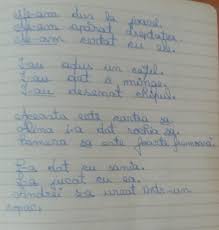 Ne-am dus la joacă.
Ne-am apărat dreptatea.
Ne-am certat cu ele.
I-au adus un cățel.
I-au dat o minge.
I-au desenat chipul.
Aceasta este cartea sa.
Alina i-a dat rochia sa.
Camera sa este foarte frumoasă.
S-a dat cu sania.
S-a jucat cu ea.
Andrei s-a urcat într-un
copac.